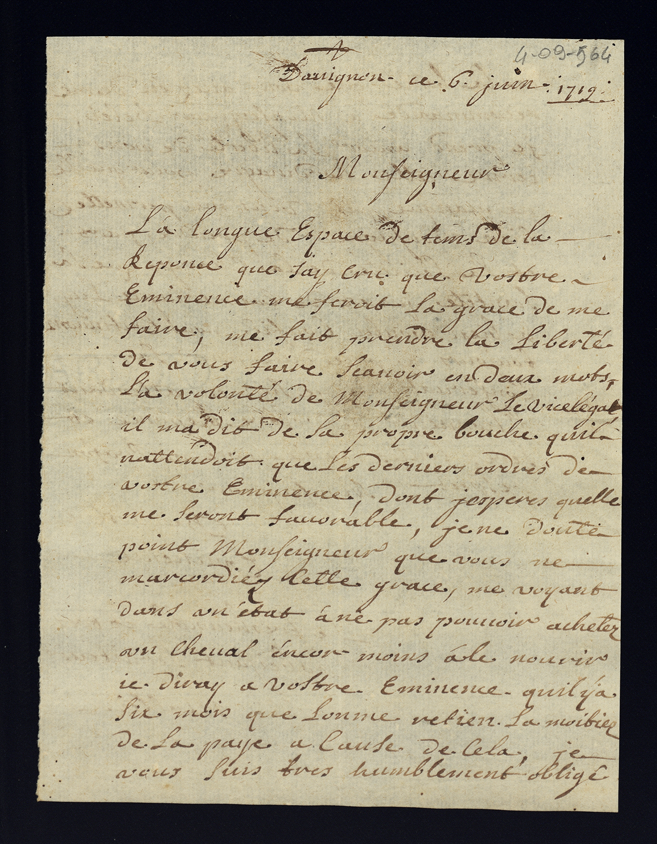 4-09-564
Davignon ce 6. juin. 1719.
Monseigneur
La longue Espace de tems de la
Reponce que jay cru que Vostre
Eminence me feroit la grace de me
faire, me fait prendre la Liberté
de vous faire scavoir en deux mots,
La volonté de Monseigneur Le vicelégat
il ma dit de sa propre bouche quil
nattendoit que Les derniers ordres de
vostre Eminence, dont josperes quelle
me seront favorable, je ne doute
point Monseigneur que vous ne
marcordiéz Cette grace, me voyant
dans un état à ne pas pouvoir achetez
un Cheval éncor moins àle nourir
ie diray a Vostre Eminence quil y a
six mois que Lonme retien La moitiez
de La paye a Cause de Cela, je
vous suis tres humblement obligé